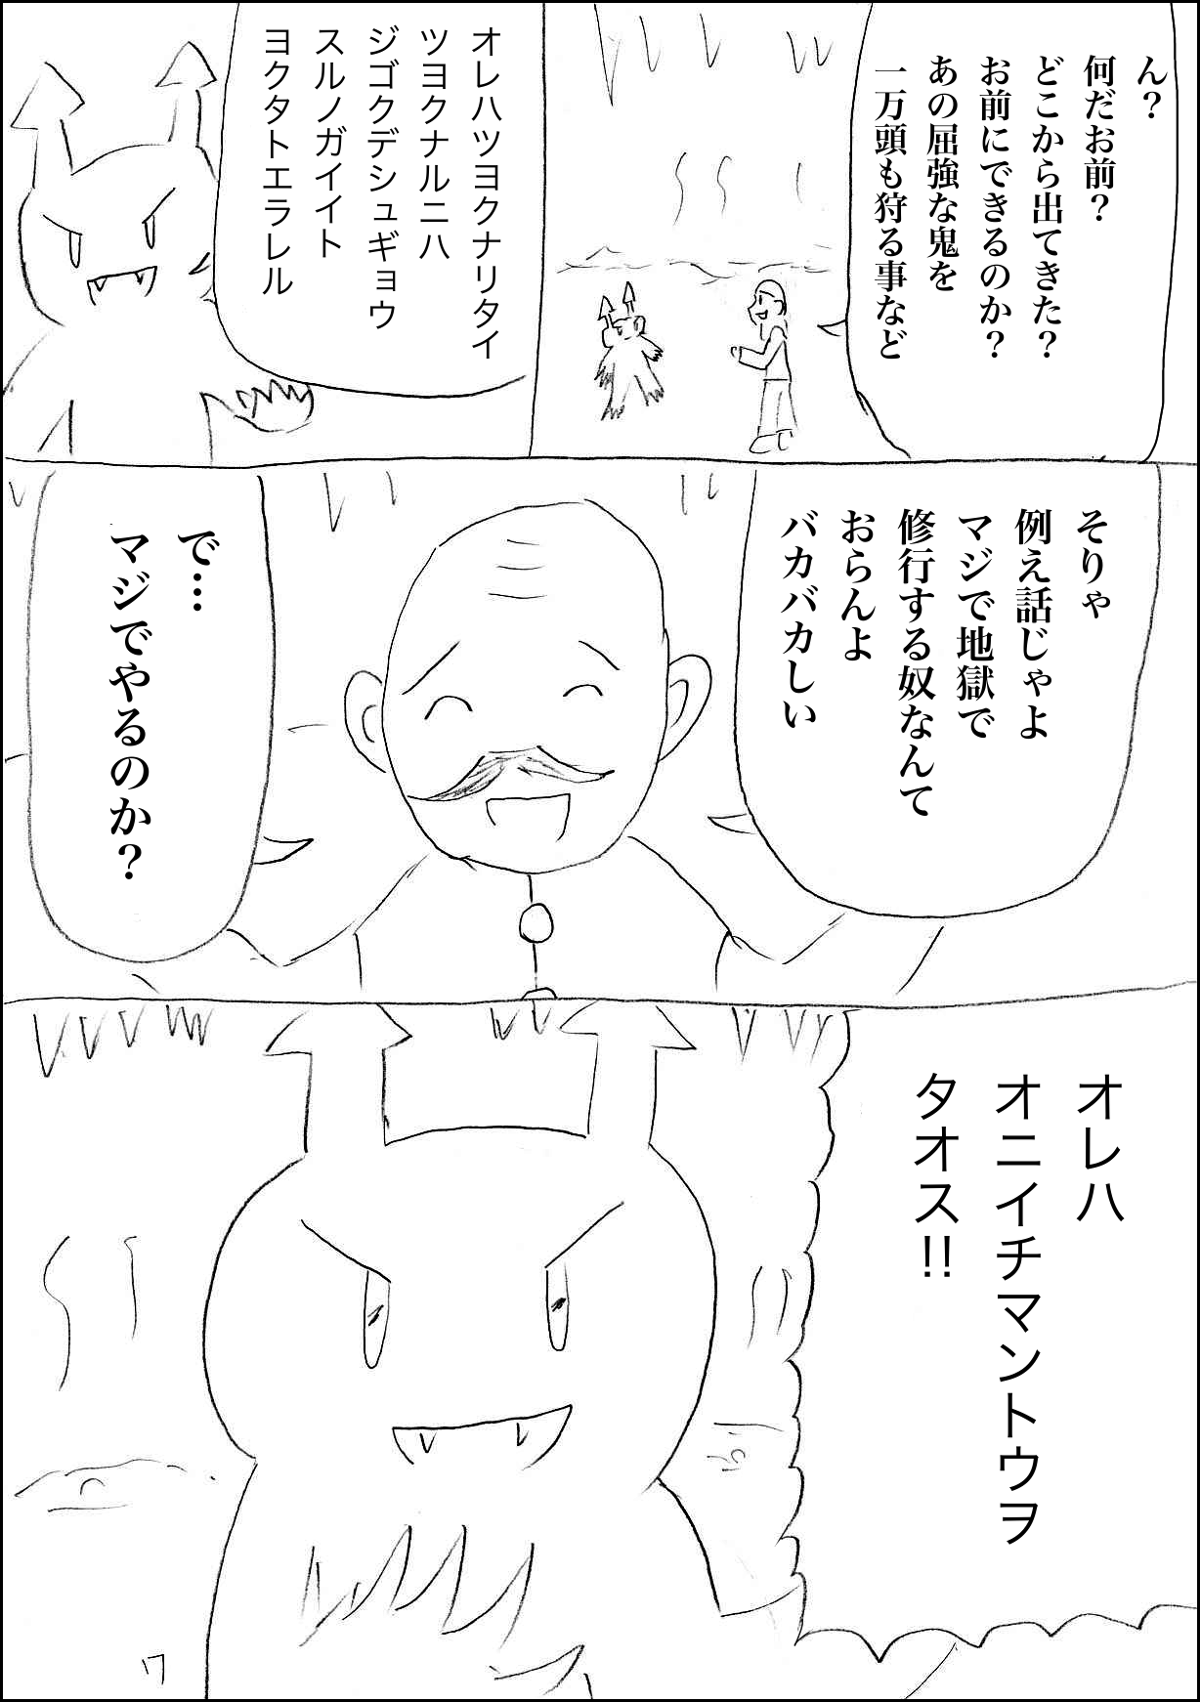 ん？
何だお前？
どこから出てきた？
お前にできるのか？
あの屈強な鬼を
一万頭も狩る事など
オレハツヨクナリタイ
ツヨクナルニハ
ジゴクデシュギョウ
スルノガイイト
ヨクタトエラレル
そりゃ
例え話じゃよ
マジで地獄で
修行する奴なんて
おらんよ
バカバカしい
で…
マジでやるのか？
オレハ
オニイチマントウヲ
タオス!!